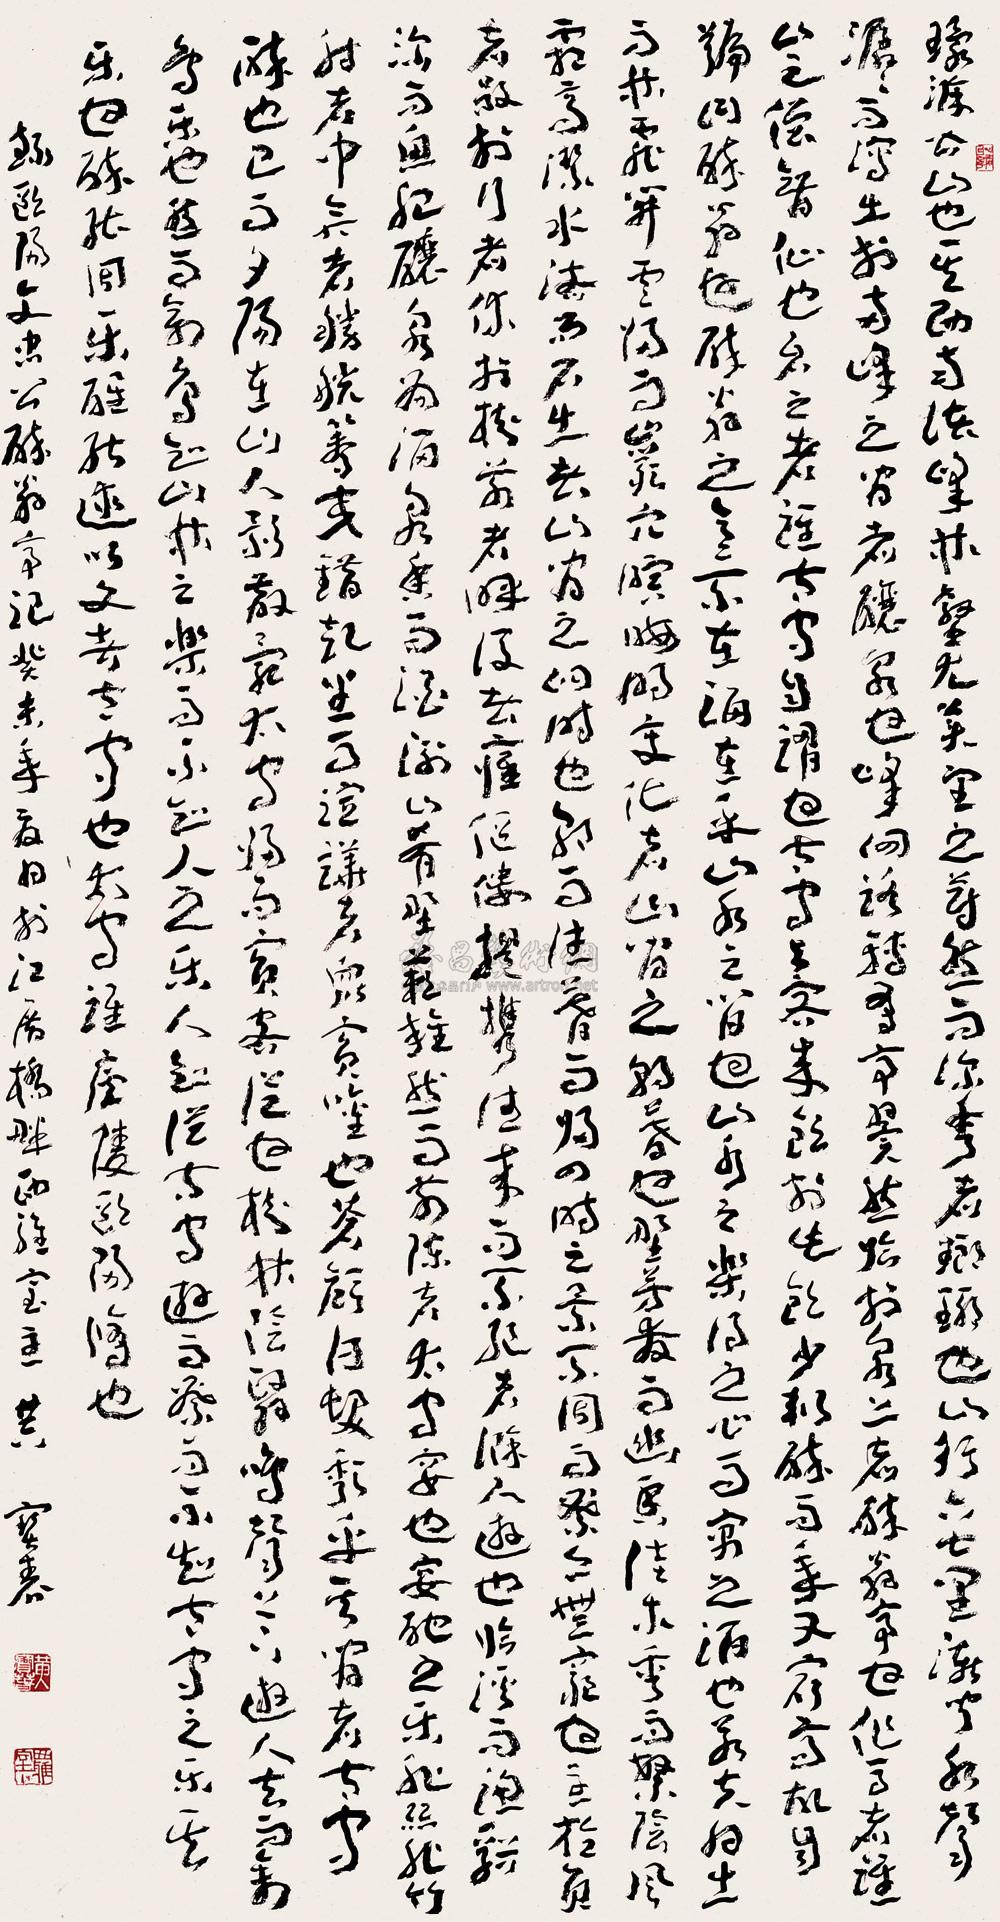 環滁皆山也其西南諸峰林壑尤美望之蔚然而深秀者瑯琊也山行六七里漸聞水聲
潺潺而瀉出於兩峰之間者釀泉也峰回路轉有亭翼然臨於泉上者醉翁亭也作亭者誰
山之僧智仙也名之者誰太守自謂也太守與客來飲於此飲少輒醉而年又最高故自
號曰醉翁也醉翁之意不在酒在乎山水之間也山水之樂得之心而寓之酒也若夫日出
而林霏開雲歸而巖穴暝晦明變化者山間之朝暮也野芳發而幽香佳木秀而繁陰風
霜高潔水落而石出者山間之四時也朝而往暮而歸四時之景不同而樂亦無窮也至於負
者歌於行者休於樹前者呼後者應傴僂提攜往來而不絕者滁人遊也臨溪而漁溪
深而魚肥釀泉為酒泉香而酒洌山肴野蔌雜然而前陳者太守宴也宴酣之樂非絲非竹
射者中弈者勝觥籌交錯起坐而諠譁者眾賓懽也蒼顏白髮頹乎其間者太守
醉也已而夕陽在山人影散亂太守歸而賓客從也樹林陰翳鳴聲上下遊人去而禽
鳥樂也然而禽鳥知山林之樂而不知人之樂人知從太守遊而樂而不知太守之樂其
樂也醉能同樂醒能述以文者太守也太守誰廬陵歐陽脩也
錄歐陽文忠公醉翁亭記癸未年夏日於江厝橋畔西羅室主 黃寶春